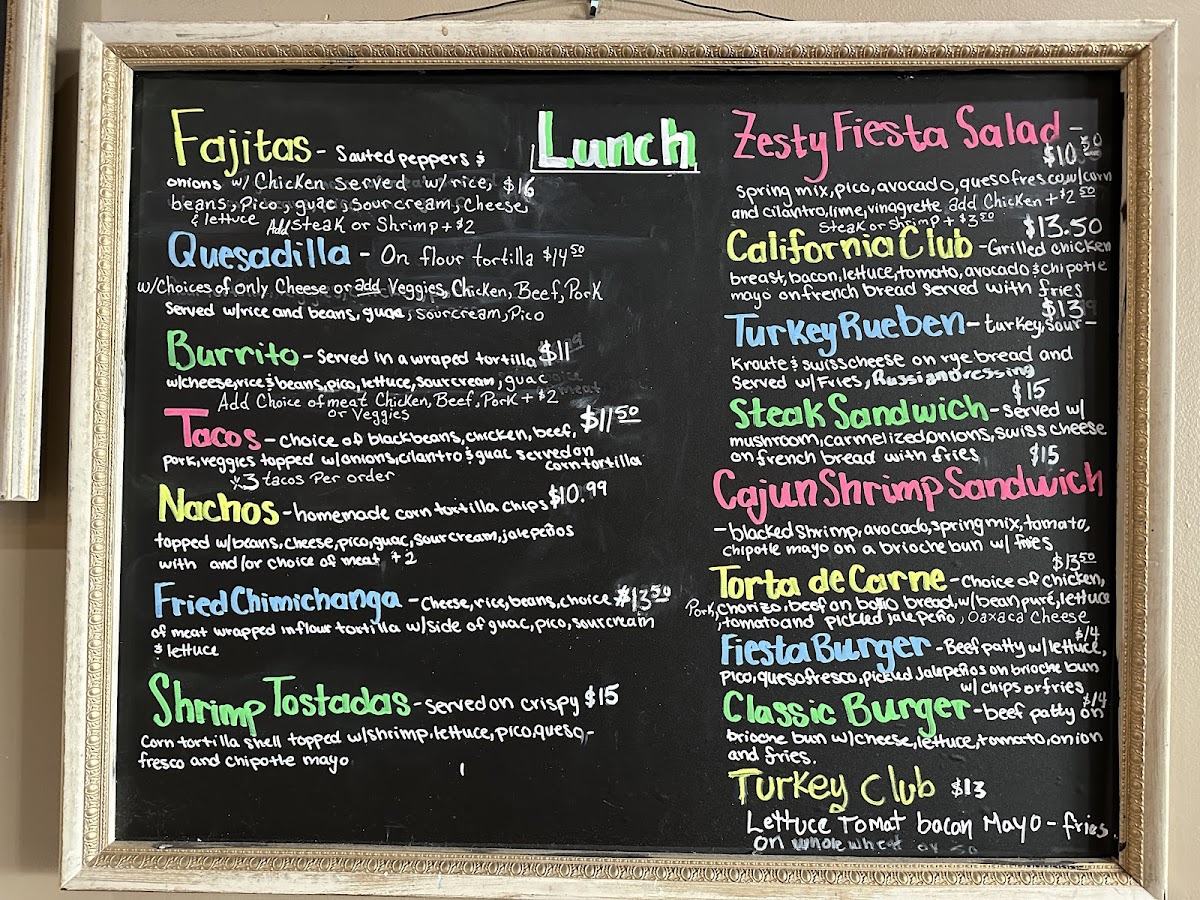 Lunch
Fajitas - Sauted peppers &
onions w/ Chicken served w/rice, $16
beans, Pico, guac, sour cream, Cheese,
& lettuce Add steak or Shrimp + $2
Quesadilla - On flour tortilla $14.50
w/choices of only Cheese or add Veggies, Chicken, Beef, Pork
Served w/rice and beans, guac, sourcream, Pico
Burrito - Served in a wraped tortilla $11
w/cheese, rice & beans, pico, lettuce, sour cream, guac
Add Choice of meat Chicken, Beef, Pork + $2
or Veggies
Tacos - choice of blackbeans, chicken, beef, $11.50
pork, veggies topped w/onions, cilantro & guac served on
corn tortilla
*3 tacos Per order
Nachos - homemade corn tortilla chips $10.99
topped w/beans, cheese, pico, guac, sour cream, jalepeños
with and/or choice of meat + 2
Fried Chimichanga - Cheese, rice, beans, choice $13.50
of meat wrapped in flour tortilla w/side of guac, pico, sour cream
& lettuce
Shrimp Tostadas - served on crispy $15
Corn tortilla shell topped w/shrimp, lettuce, pico, queso-
fresco and chipotle mayo
Zesty Fiesta Salad -
$10.50
spring mix, pico, avocado, queso fresco w/corn
and cilantro, lime, vinagrette add Chicken + $2.50
Steak or Shrimp + $3.50
$13.50
California Club - Grilled chicken
breast, bacon, lettuce, tomato, avocado & chipotle
mayo on french bread served with fries
$13
Turkey Rueben - turkey, sour -
Kraute & swiss cheese on rye bread and
Served w/Fries, Russian dressing
$15
Steak Sandwich - served w/
mushroom, carmelized onions, swiss cheese
on french bread with fries
$15
Cajun Shrimp Sandwich
- blacked shrimp, avocado, spring mix, tomato,
chipotle mayo on a brioche bun w/ fries
$13.50
Torta de Carne - Choice of chicken,
Pork, chorizo, beef on bolio bread, w/bean puré, lettuce
, tomato and pickled jalepeño, Oaxaca Cheese
$14
Fiesta Burger - Beef patty w/lettuce,
pico, queso fresco, pickled Jalapeños on brioche bun
w/ chips or fries
$14
Classic Burger - beef patty on
brioche bun w/cheese, lettuce, tomato, onion
and fries.
Turkey Club $13
Lettuce Tomat bacon Mayo - fries
on whole wheat